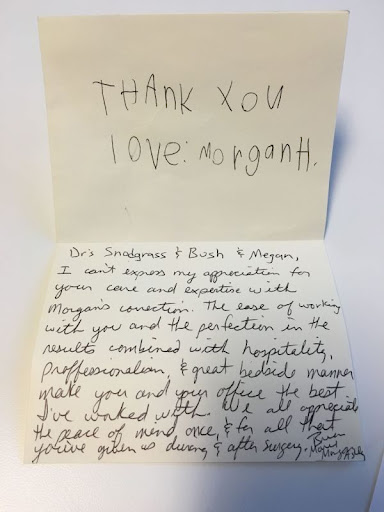 THANK YOU
love: Morgan H.
Dr's Snodgrass & Bush & Megan,
I can't express my appreciation for
your care and expertise with
Morgan's correction. The ease of working
with you and the perfection in the
results combined with hospitality,
proffessionalism, & great bedside manner
make you and your office the best
I've worked with. We all appreciate
the peace of mind once, & for all that
you've given us during & after surgery.